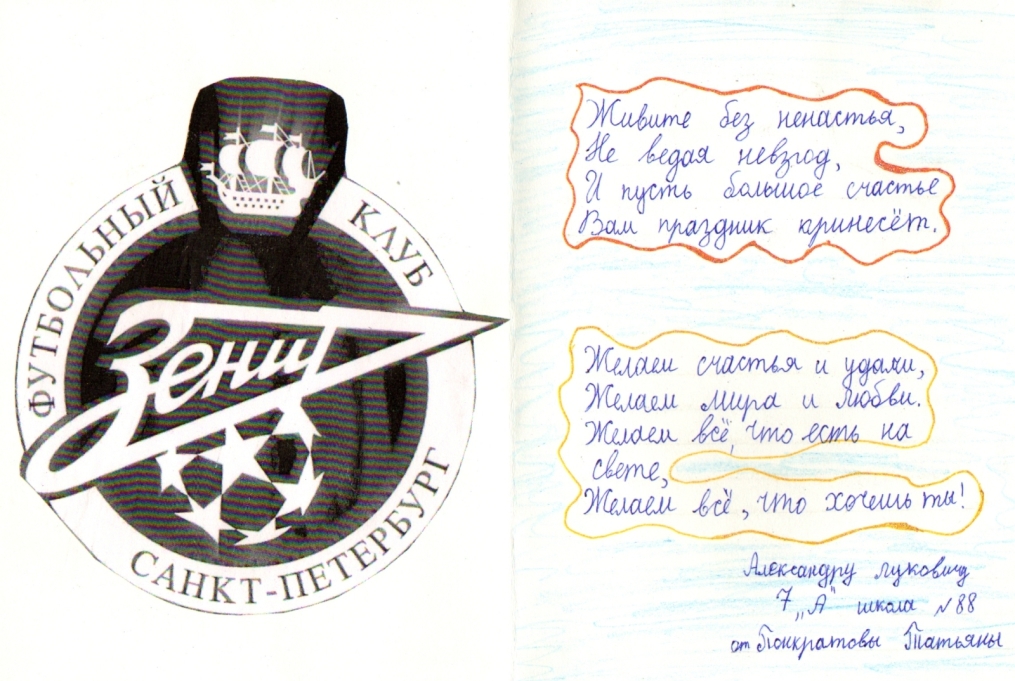 ФУТБОЛЬНЫЙ КЛУБ
Зенит
САНКТ-ПЕТЕРБУРГ
Живите без ненастья,
Не ведая невзгод,
И пусть большое счастье
Вам праздник принесёт.
Желаем счастья и удачи,
Желаем мира и любви.
Желаем всё, что есть на
свете,
Желаем всё, что хочешь ты!
Александру Луковичу
7 „А" школа №88
от Понкратовы Татьяны